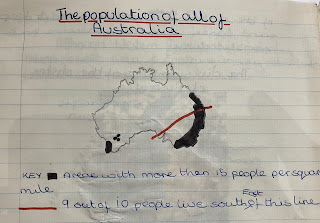 The population of all of
Australia
KEY Areas with more than 15 people per square
mile
9 out of 10 people live south East of this line